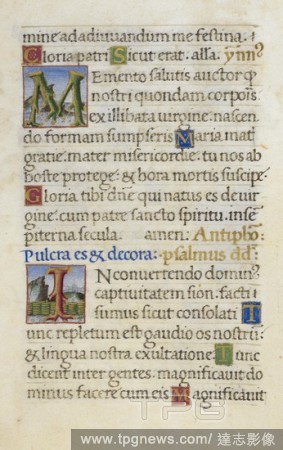 mine ad adiuuandum me festina.
Gloria patri Sicut erat. alla. ymn?
Memento salutis auctor q
nostri quondam corporis
ex illibata uirgine. nascen
do formam sumpseris Maria mat
gratie. mater misericordie. tu nos ab
hoste protege. & hora mortis suscipe
Gloria tibi dne qui natus es de uir
gine. cum patre sancto spiritu. in se
piterna secula. amen. Antipho.
Pulcra es & decora. psalmus dd.
In convertendo domin?
captiuitatem sion. facti
sumus sicut consolati T
unc repletum est gaudio os nostru
& lingua nostra exultatione. Tunc
dicent inter gentes. magnificauit do
minus facere cum eis Magnificauit
TPG
www.tpgnews.com / 達志影像